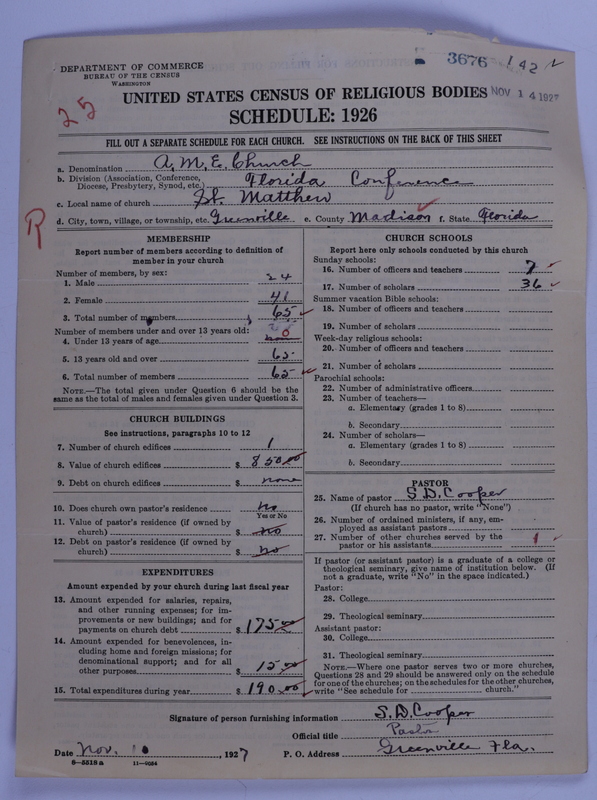 3676 142
DEPARTMENT OF COMMERCE
BUREAU OF THE CENSUS
WASHINGTON
UNITED STATES CENSUS OF RELIGIOUS BODIES NOV 14 1927
25
SCHEDULE: 1926
FILL OUT A SEPARATE SCHEDULE FOR EACH CHURCH. SEE INSTRUCTIONS ON THE BACK OF THIS SHEET
a. Denomination A. M. E. Church
b. Division (Association, Conference, Diocese, Presbytery, Synod, etc.) Florida Conference
c. Local name of church St. Matthew
d. City, town, village, or township, etc. Greenville e. County Madison f. State Florida
R
MEMBERSHIP
Report number of members according to definition of
member in your church
Number of members, by sex:
1. Male 24
2. Female 41
3. Total number of members 65
Number of members under and over 13 years old:
4. Under 13 years of age 0
5. 13 years old and over 65
6. Total number of members 65
NOTE.—The total given under Question 6 should be
same as the total of males and females given under Question 3.
CHURCH BUILDINGS
See instructions, paragraphs 10 to 12
7. Number of church edifices 1
8. Value of church edifices $ 850.00
9. Debt on church edifices $ none
10. Does church own pastor's residence no
Yes or No
11. Value of pastor's residence (if owned by
church) $ no
12. Debt on pastor's residence (if owned by
church) $ no
EXPENDITURES
Amount expended by your church during last fiscal year
13. Amount expended for salaries, repairs,
and other running expenses; for im-
provements or new buildings; and for
payments on church debt $ 175.00
14. Amount expended for benevolences, in-
cluding home and foreign missions; for
denominational support; and for all
other purposes $ 15.00
15. Total expenditures during year $ 190.00
CHURCH SCHOOLS
Report here only schools conducted by this church
Sunday schools:
16. Number of officers and teachers 7
17. Number of scholars 36
Summer vacation Bible schools:
18. Number of officers and teachers
19. Number of scholars
Week-day religious schools:
20. Number of officers and teachers
21. Number of scholars
Parochial schools:
22. Number of administrative officers
23. Number of teachers—
a. Elementary (grades 1 to 8)
b. Secondary
24. Number of scholars—
a. Elementary (grades 1 to 8)
b. Secondary
PASTOR
25. Name of pastor S. D. Cooper
(If church has no pastor, write "None")
26. Number of ordained ministers, if any, em-
ployed as assistant pastors
27. Number of other churches served by the
pastor or his assistants 1
If pastor (or assistant pastor) is a graduate of a college or
theological seminary, give name of institution below. (If
not a graduate, write "No" in the space indicated.)
Pastor:
28. College
29. Theological seminary
Assistant pastor:
30. College
31. Theological seminary
NOTE.—Where one pastor serves two or more churches,
Questions 28 and 29 should be answered only on the schedule
for one of the churches; on the schedules for the other churches,
write "See schedule for church."
Signature of person furnishing information S. D. Cooper
Official title Pastor
Date Nov. 10, 1927 P. O. Address Greenville Fla.
8—5518 a 11—9054